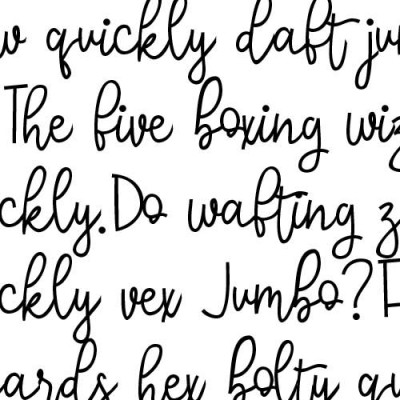 w quickly daft ju
The five boxing wiz
ckly. Do wafting z
ckly vex Jumbo? F
ards hex bolty qu